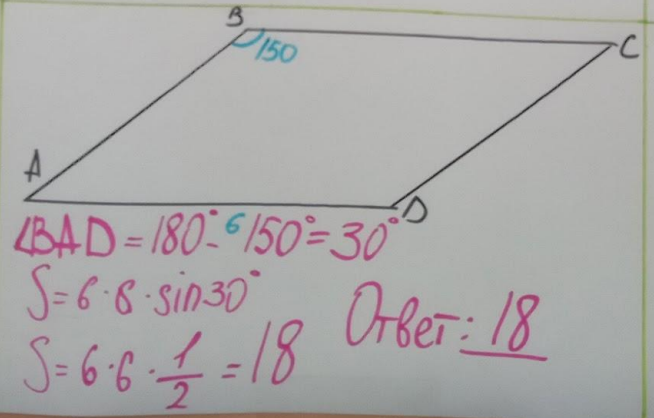 B
150
C
A
D
6
∠BAD = 180° - 150° = 30°
S = 6 · 6 · sin30°
S = 6 · 6 · 1/2 = 18
Ответ: 18